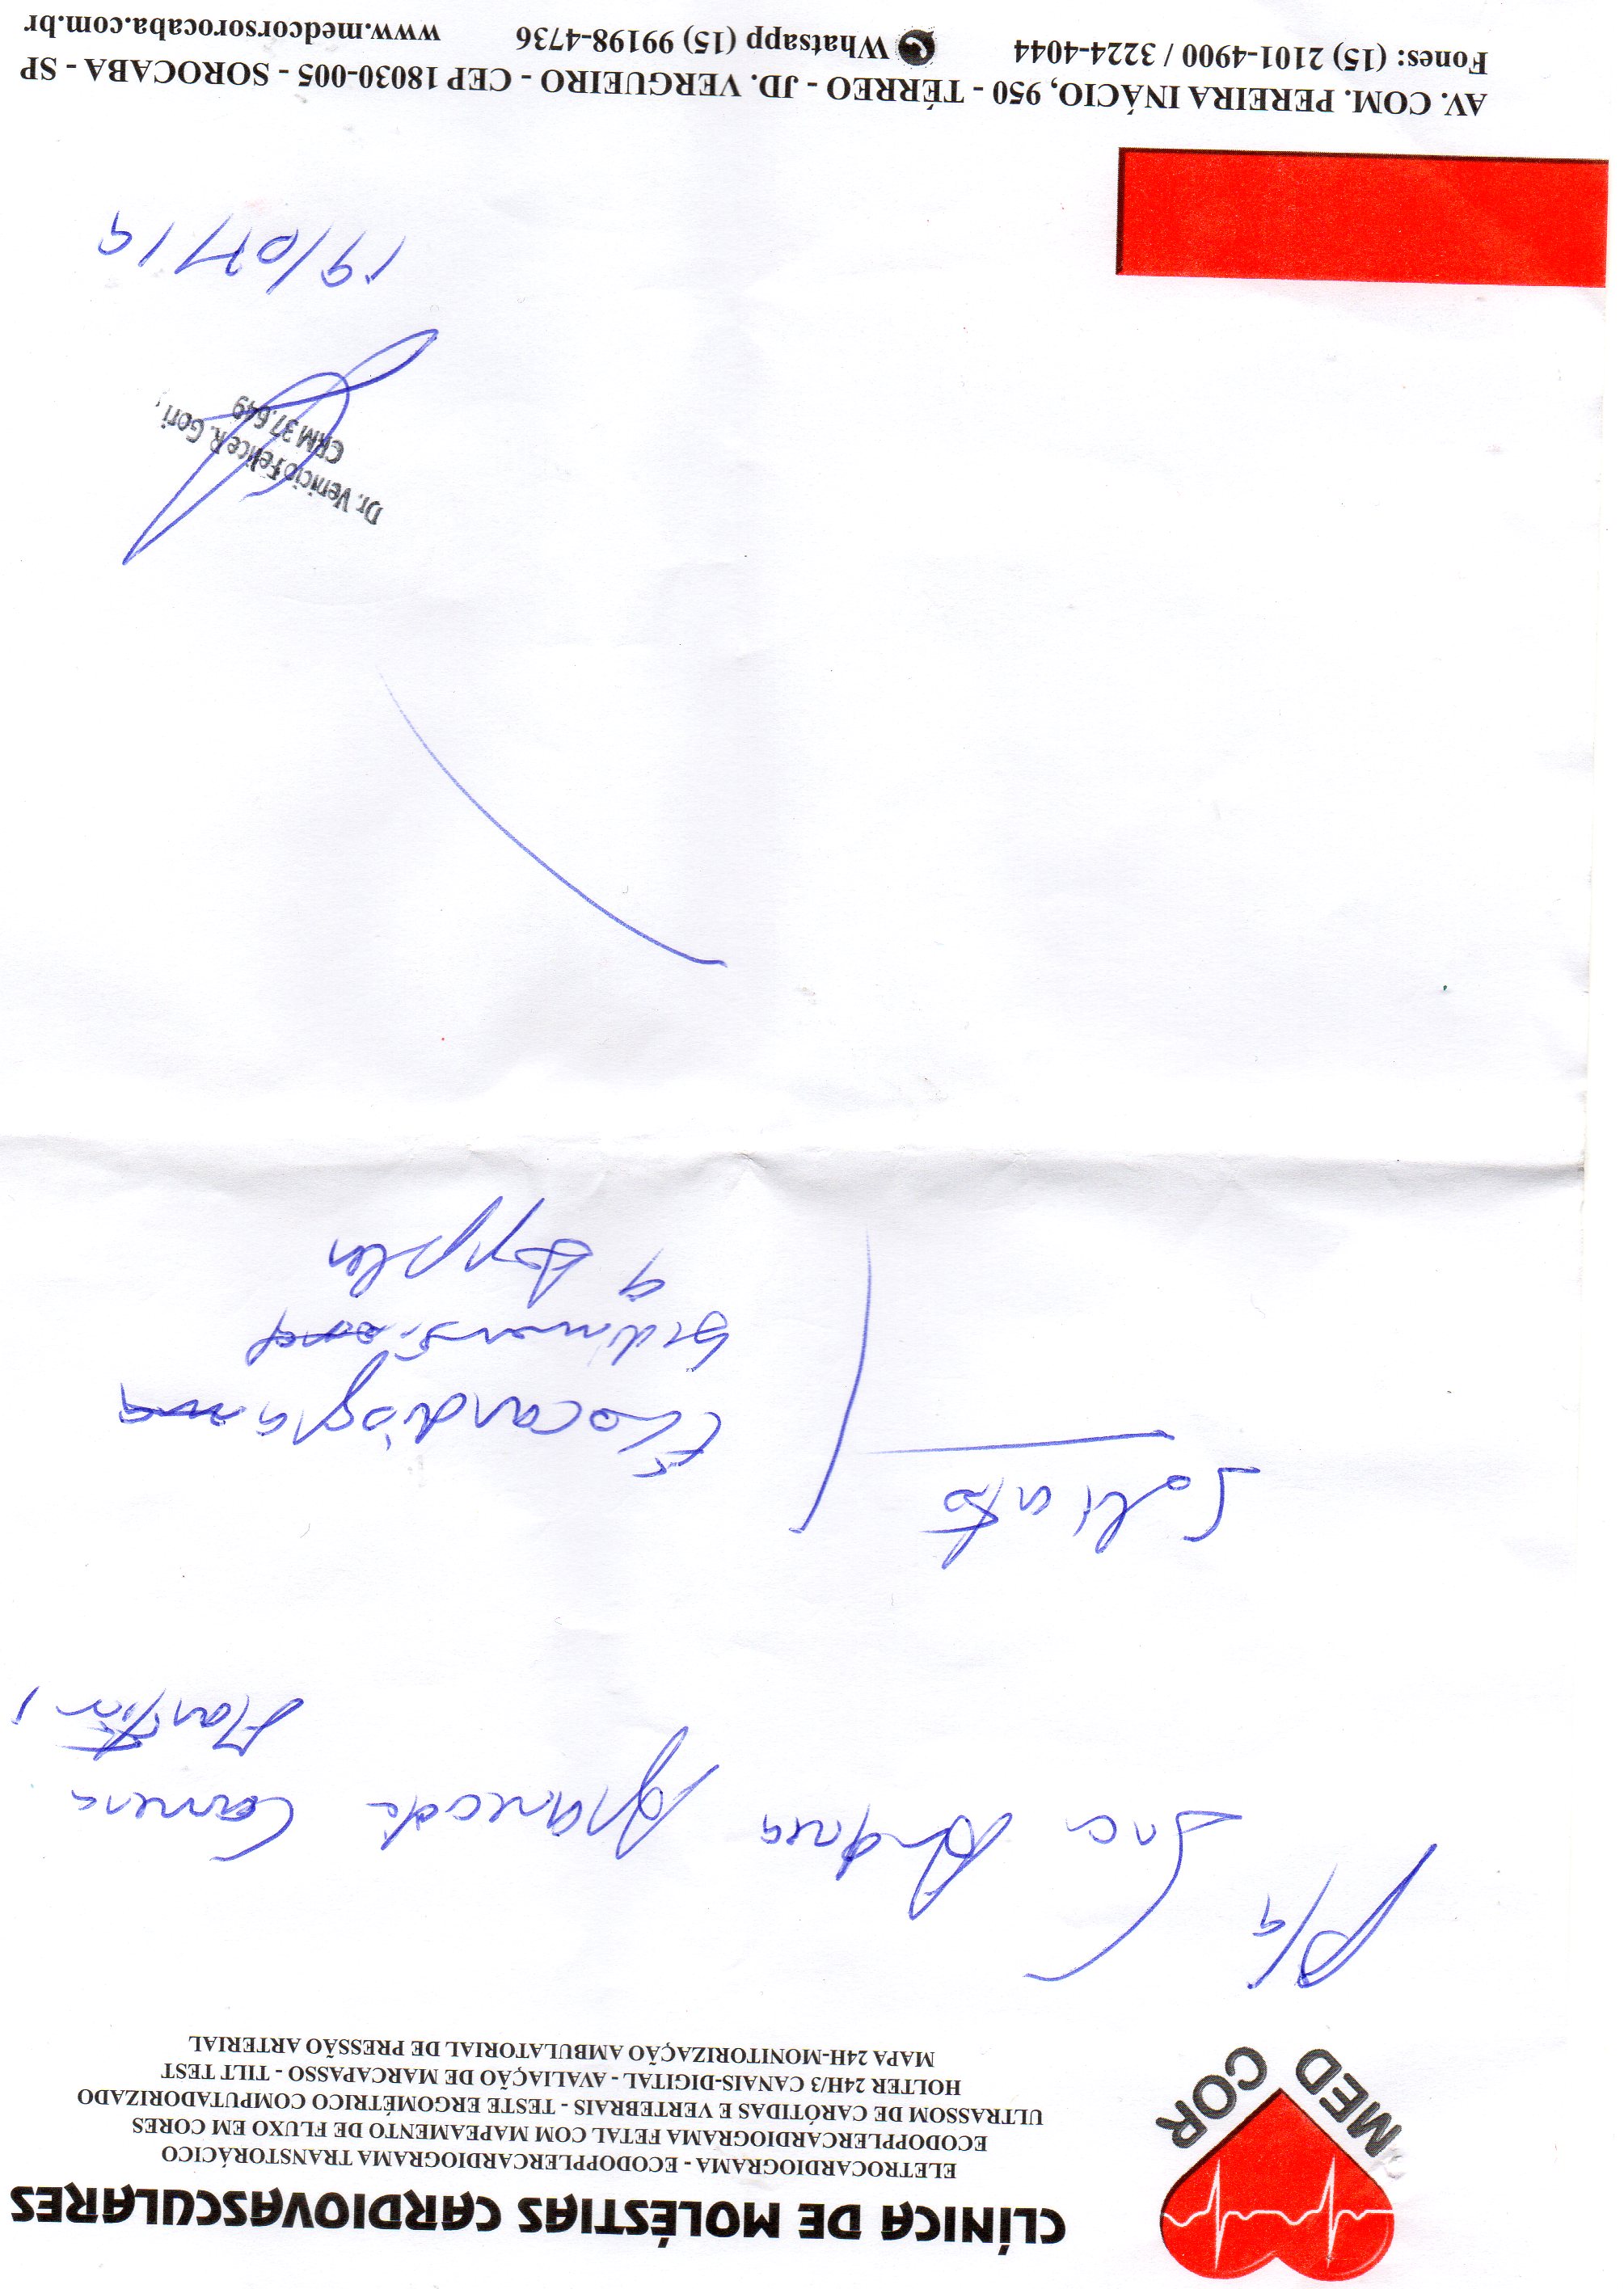 MED COR
CLÍNICA DE MOLÉSTIAS CARDIOVASCULARES
ELETROCARDIOGRAMA - ECODOPPLERCARDIOGRAMA TRANSTORÁCICO
ECODOPPLERCARDIOGRAMA FETAL COM MAPEAMENTO DE FLUXO EM CORES
ULTRASSOM DE CARÓTIDAS E VERTEBRAIS - TESTE ERGOMÉTRICO COMPUTADORIZADO
HOLTER 24H/3 CANAIS-DIGITAL - AVALIAÇÃO DE MARCAPASSO - TILT TEST
MAPA 24H-MONITORIZAÇÃO AMBULATORIAL DE PRESSÃO ARTERIAL
P/a
Sra Andrea Aparecida Carrera
Martins
Solicito
Ecocardiograma
bidimensional
a Doppler
Dr. Venicio Felice R. Gori
CRM 37.649
19/07/19
AV. COM. PEREIRA INÁCIO, 950 - TÉRREO - JD. VERGUEIRO - CEP 18030-005 - SOROCABA - SP
Fones: (15) 2101-4900 / 3224-4044 Whatsapp (15) 99198-4736 www.medcorsorocaba.com.br